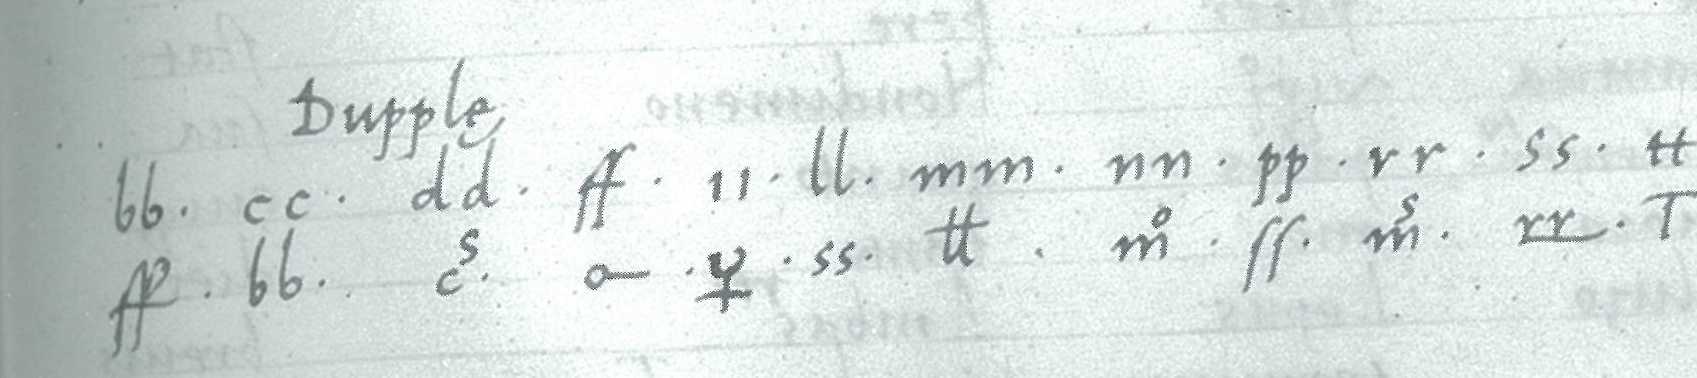 Dupplę
bb. cc. dd. ff. ıı. ll. mm. nn. pp. rr. ss. tt
ff. bb. cˢ. o— . ss. tt. m° . ſſ. mˢ. rr. T